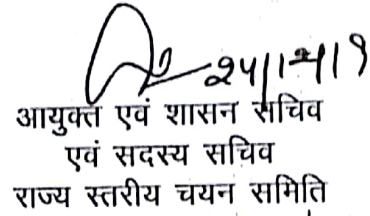 आयुक्त एवं शासन सचिव
एवं सदस्य सचिव
राज्य स्तरीय चयन समिति